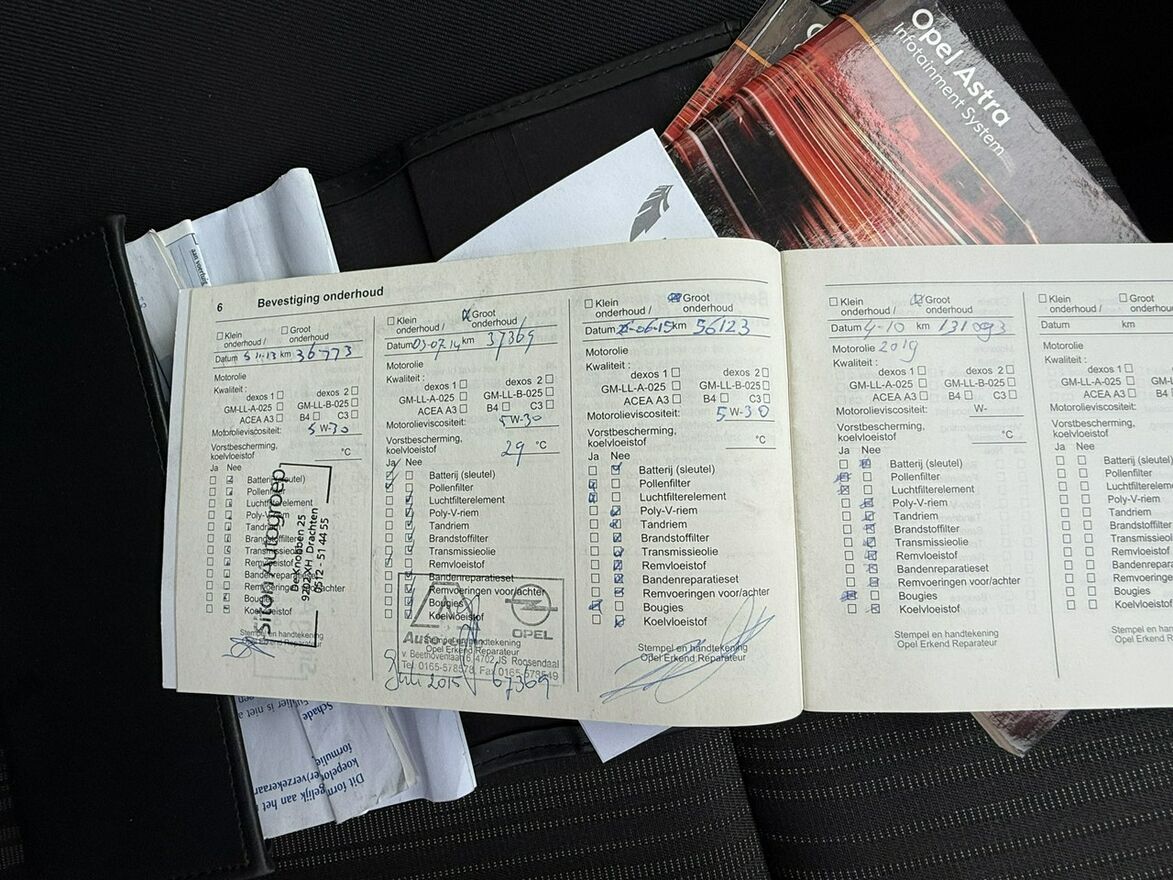 Opel Astra
Infotainment System
6 Bevestiging onderhoud
☐ Klein onderhoud / ☐ Groot onderhoud
Datum 5 11-13 km 36773
Motorolie
Kwaliteit :
dexos 1 ☐ dexos 2 ☐
GM-LL-A-025 ☐ GM-LL-B-025 ☐
ACEA A3 ☐ B4 ☐ C3 ☐
Motorolieviscositeit: 5 W-30
Vorstbescherming,
koelvloeistof °C
Ja Nee
Batterij (sleutel)
Pollenfilter
Luchtfilterelement
Poly-V-riem
Tandriem
Brandstoffilter
Transmissieolie
Remvloeistof
Bandenreparatieset
Remvoeringen voor/achter
Bougies
Koelvloeistof
Stempel en handtekening
Opel Erkend Reparateur
De Knobben 25
9202 XH Drachten
0512 - 51 44 55
☐ Klein onderhoud / ☒ Groot onderhoud
Datum 03-07.14 km 37369
Motorolie
Kwaliteit :
dexos 1 ☐ dexos 2 ☐
GM-LL-A-025 ☐ GM-LL-B-025 ☐
ACEA A3 ☐ B4 ☐ C3 ☐
Motorolieviscositeit: 5W-30
Vorstbescherming,
koelvloeistof 29 °C
Ja Nee
Batterij (sleutel)
Pollenfilter
Luchtfilterelement
Poly-V-riem
Tandriem
Brandstoffilter
Transmissieolie
Remvloeistof
Bandenreparatieset
Remvoeringen voor/achter
Bougies
Koelvloeistof
OPEL
Stempel en handtekening
Opel Erkend Reparateur
v. Beethovenlaan 6, 4702 IS Roosendaal
Tel. 0165-578578, Fax 0165-578549
Juli 2015 67369
☐ Klein onderhoud / ☒ Groot onderhoud
Datum -06-15 km 56123
Motorolie
Kwaliteit :
dexos 1 ☐ dexos 2 ☐
GM-LL-A-025 ☐ GM-LL-B-025 ☐
ACEA A3 ☐ B4 ☐ C3 ☐
Motorolieviscositeit: 5 W-30
Vorstbescherming,
koelvloeistof °C
Ja Nee
Batterij (sleutel)
Pollenfilter
Luchtfilterelement
Poly-V-riem
Tandriem
Brandstoffilter
Transmissieolie
Remvloeistof
Bandenreparatieset
Remvoeringen voor/achter
Bougies
Koelvloeistof
Stempel en handtekening
Opel Erkend Reparateur
☐ Klein onderhoud / ☒ Groot onderhoud
Datum 4-10 km 131093
Motorolie 2019
Kwaliteit :
dexos 1 ☐ dexos 2 ☐
GM-LL-A-025 ☐ GM-LL-B-025 ☐
ACEA A3 ☐ B4 ☐ C3 ☐
Motorolieviscositeit: W-
Vorstbescherming,
koelvloeistof °C
Ja Nee
Batterij (sleutel)
Pollenfilter
Luchtfilterelement
Poly-V-riem
Tandriem
Brandstoffilter
Transmissieolie
Remvloeistof
Bandenreparatieset
Remvoeringen voor/achter
Bougies
Koelvloeistof
Stempel en handtekening
Opel Erkend Reparateur
☐ Klein onderhoud / ☐ Groot onderhoud
Datum km
Motorolie
Kwaliteit :
dexos 1 ☐
GM-LL-A-025 ☐ GM-LL-B-
ACEA A3 ☐ B4 ☐
Motorolieviscositeit:
Vorstbescherming,
koelvloeistof
Ja Nee
Batterij (sleutel)
Pollenfilter
Luchtfilterelement
Poly-V-riem
Tandriem
Brandstoffilter
Transmissieolie
Remvloeistof
Bandenreparatieset
Remvoeringen voor/
Bougies
Koelvloeistof
Stempel en handtekening
Opel Erkend Reparateur
Schade